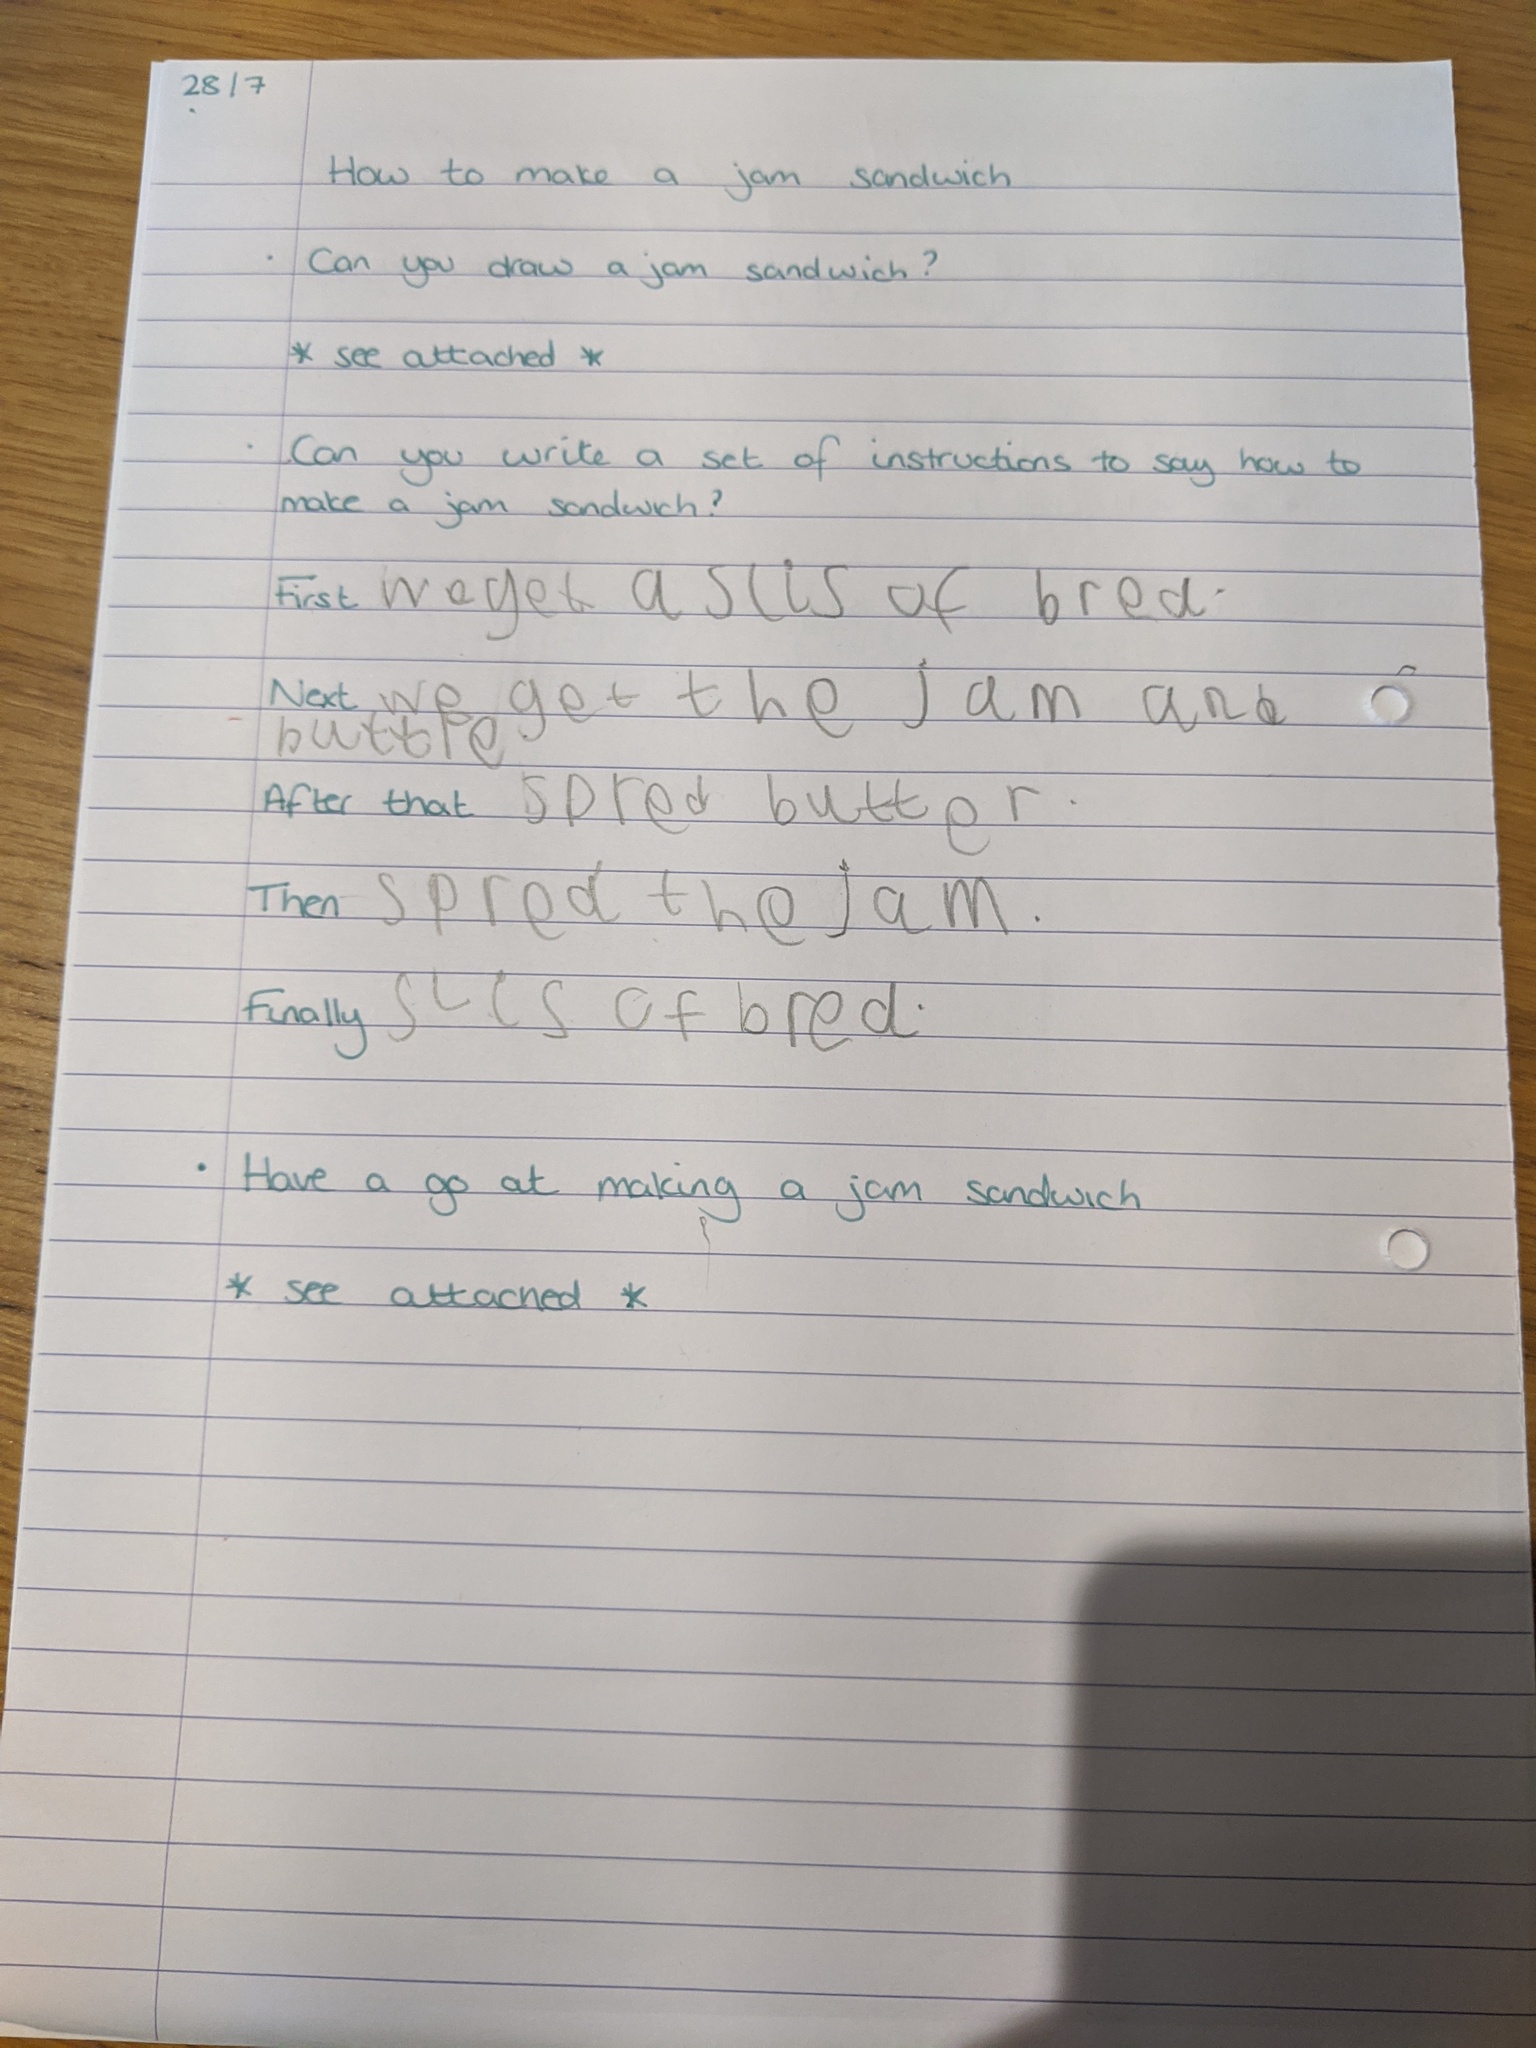 28/7
How to make a jam sandwich
· Can you draw a jam sandwich?
* see attached *
· Can you write a set of instructions to say how to
make a jam sandwich?
First we get a slis of bred.
Next we get the jam and
buttre
After that spred butter.
Then spred the jam.
Finally slis of bred.
· Have a go at making a jam sandwich
* see attached *